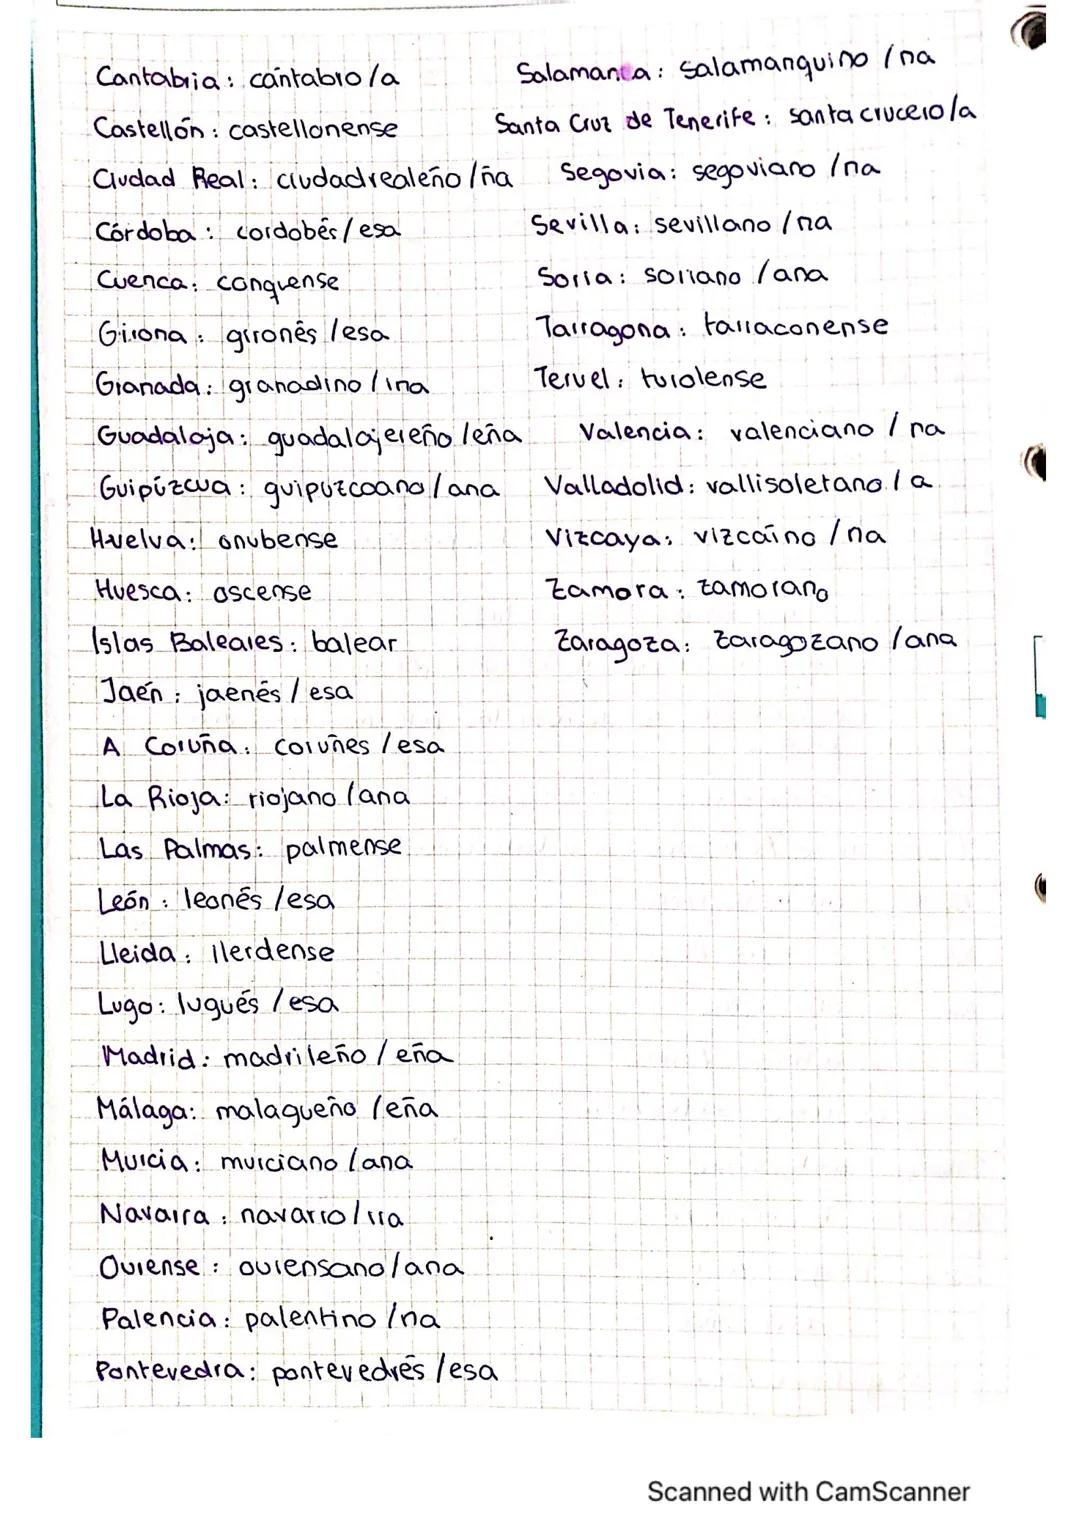 Cantabria: cántabro/a
Castellón: castellonense
Ciudad Real: ciudadrealeño/ña
Córdoba: cordobés/esa
Cuenca: conquense
Girona: gironés/esa
Granada: granadino/ina
Guadalaja: guadalajereño/eña
Guipúzcua: guipuzcoano/ana
Huelva: onubense
Huesca: oscense
Islas Baleares: balear
Jaén: jaenés/esa
A Coruña: coruñes/esa
La Rioja: riojano/ana
Las Palmas: palmense
León: leonés/esa
Lleida: llerdense
Lugo: lugués/esa
Madrid: madrileño/eña
Málaga: malagueño/eña
Murcia: murciano/ana
Navarra: navarro/rra
Ourense: ourensano/ana
Palencia: palentino/na
Pontevedra: pontevedrés/esa
Salamanca: salamanquino/na
Santa Cruz de Tenerife: santacrucero/a
Segovia: segoviano/na
Sevilla: sevillano/na
Soria: soriano/ana
Tarragona: tarraconense
Teruel: turolense
Valencia: valenciano/na
Valladolid: vallisoletano/a
Vizcaya: vizcaíno/na
Zamora: zamorano
Zaragoza: zaragozano/ana
Scanned with CamScanner